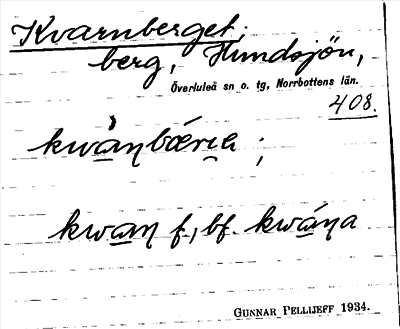 Kvarnberget,
berg, Hundsjön,
Överluleå sn o. tg, Norrbottens län.
408.
kwånbæri̯a ;
kwan f., bf. kwána
GUNNAR PELLIJEFF 1934.